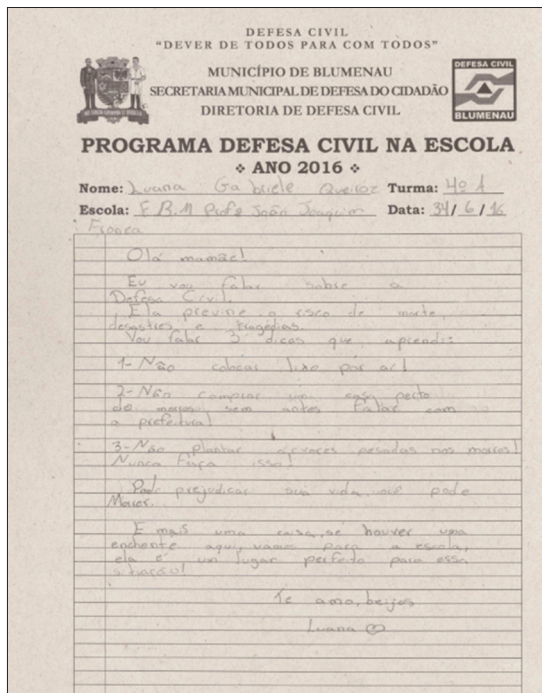 DEFESA CIVIL
"DEVER DE TODOS PARA COM TODOS"
MUNICÍPIO DE BLUMENAU
SECRETARIA MUNICIPAL DE DEFESA DO CIDADÃO
DIRETORIA DE DEFESA CIVIL
DEFESA CIVIL
BLUMENAU
PROGRAMA DEFESA CIVIL NA ESCOLA
ANO 2016
Nome: Luana Gabriele Queiroz Turma: 4º A
Escola: E.B.M Profº João Joaquim Data: 34/6/16
Fronca
Olá mamãe!
Eu vou falar sobre a
Defesa Civil.
Ela previne o risco de morte,
desastres e tragédias.
Vou falar 3 dicas que aprendi:
1- Não colocar lixo por aí!
2- Não comprar um casa perto
de morros sem antes falar com
a prefeitura!
3- Não plantar árvores pesadas nos morros!
Nunca faça isso!
Pode prejudicar sua vida, você pode
Morrer.
E mais uma coisa, se houver uma
enchente aqui, vamos para a escola,
ela é um lugar perfeito para essa
situação!
Te amo, beijos
Luana